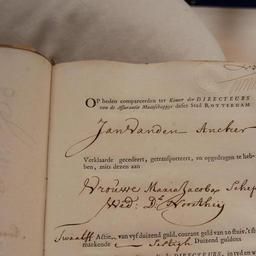 OP heden compareerden ter Kamer der DIRECTEURS
van de Assurantie Maatschappye deser Stad ROTTERDAM
Jan vanden Ancker
Verklaarde gecedeert, getransporteert, en opgedragen te heb-
ben, mits dezen aan
Vrouwe Maria Jacoba
Wed:
Twaalff Actie van vyf duizend guld, courant geld van 20 stuiv. 't st
mackende Sestigh Duizend guldens
DIRECTEURS, in ved en w